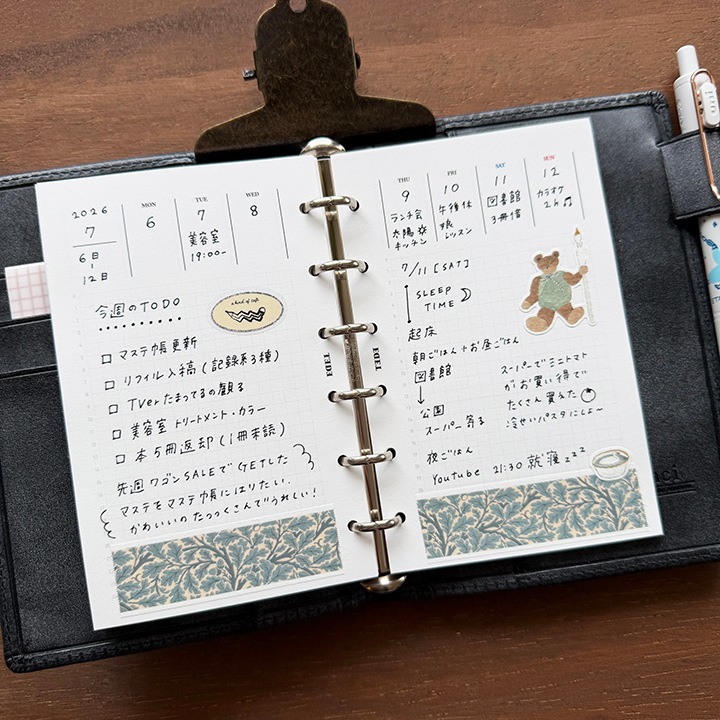 2026
7
6日
12日
MON
6
TUE
7
美容室
19:00-
WED
8
今週のTODO
a kind of cafe
□ マステ帳更新
□ リフィル入稿(記録系3種)
□ TVerたまってるの観る
□ 美容室 トリートメント・カラー
□ 本5冊返却(1冊未読)
先週ワゴンSALEでGETした
マステをマステ帳にはりたい.
かわいいのたっっくさんでうれしい!
THU
9
ランチ会
太陽
キッチン
FRI
10
午後休
娘
レッスン
SAT
11
図書館
3冊借
SUN
12
カラオケ
2h♫
7/11 [SAT]
SLEEP
TIME
起床
朝ごはん+お昼ごはん
図書館
↓
公園
スーパー寄る
夜ごはん
Youtube 21:30 就寝zzz
スーパーでミニトマト
がお買い得で
たくさん買えた
冷せいパスタにしよ〜
EDiT
EDiT
uni